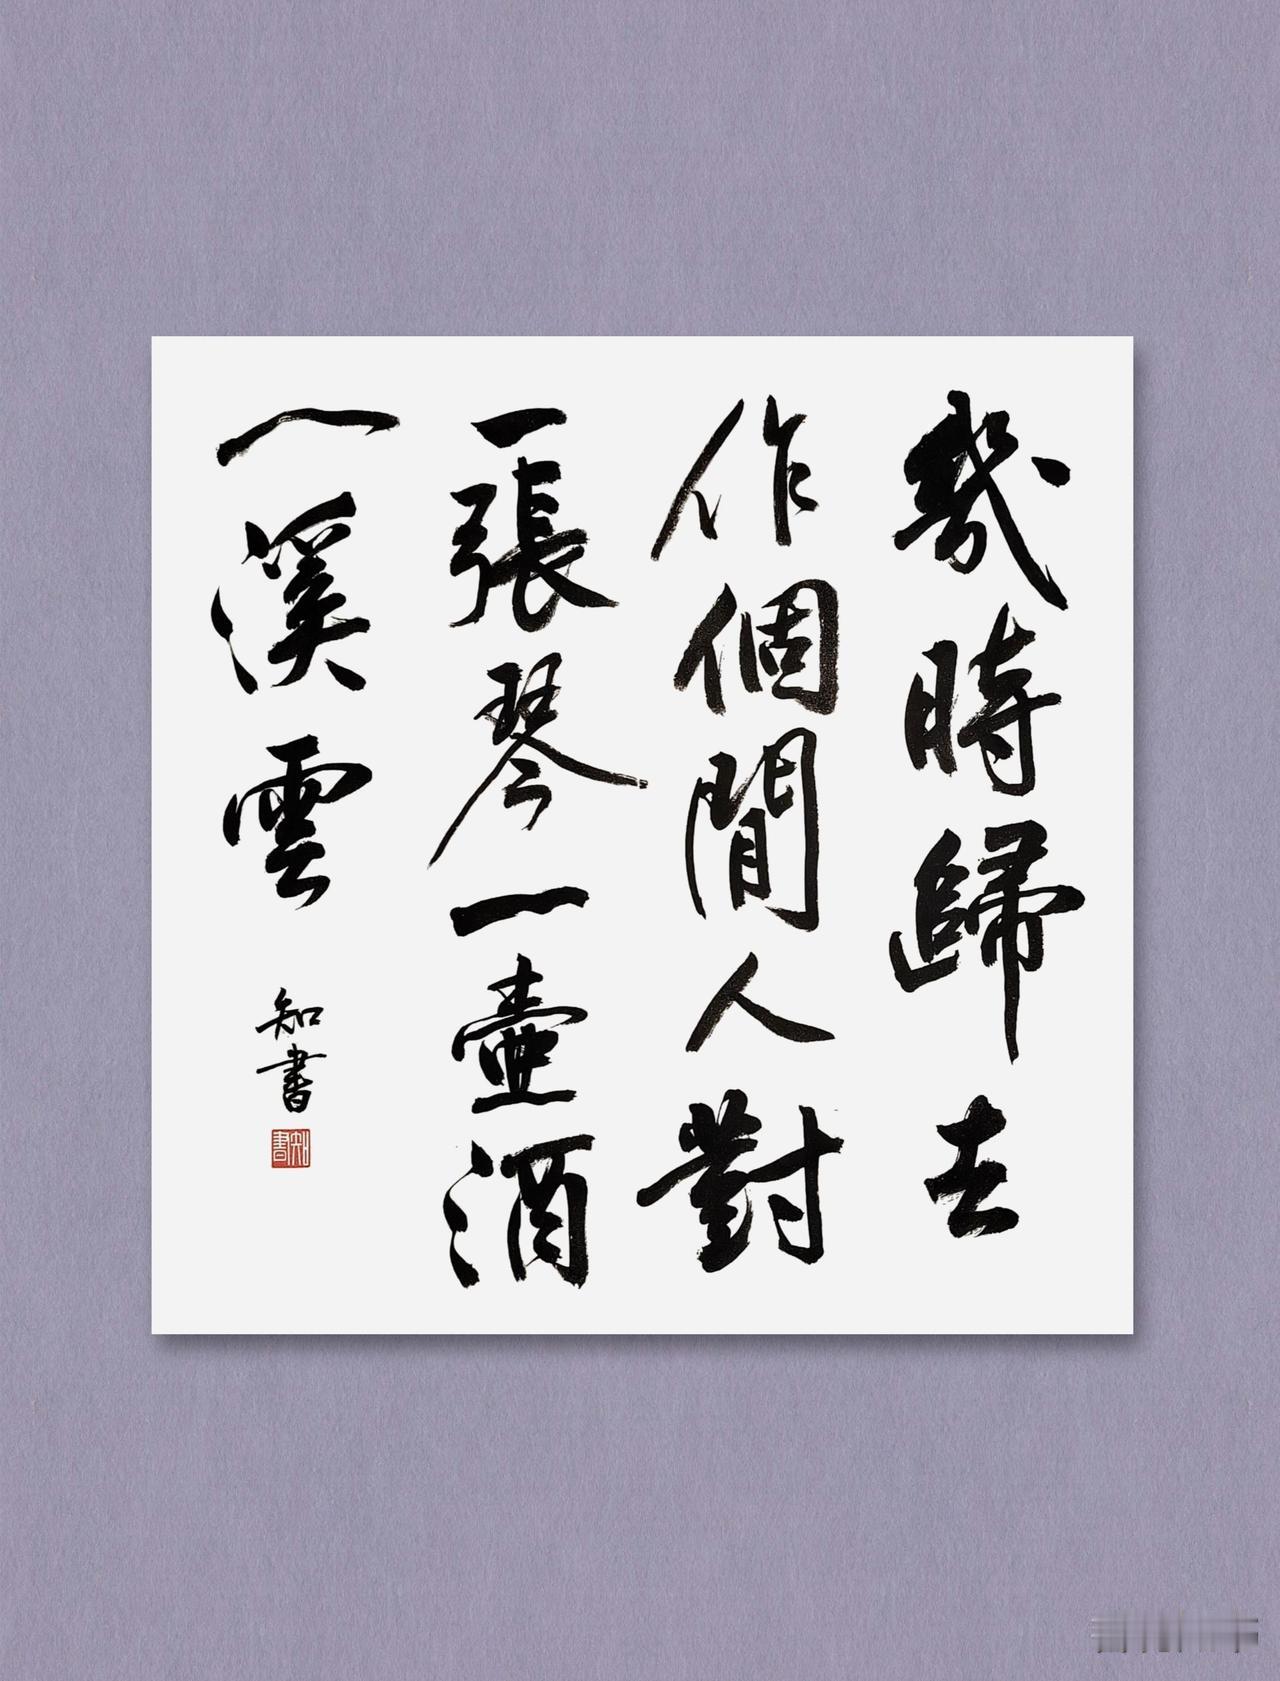 幾時歸去
作個閒人對
一張琴一壺酒
一溪雲
知書
知書